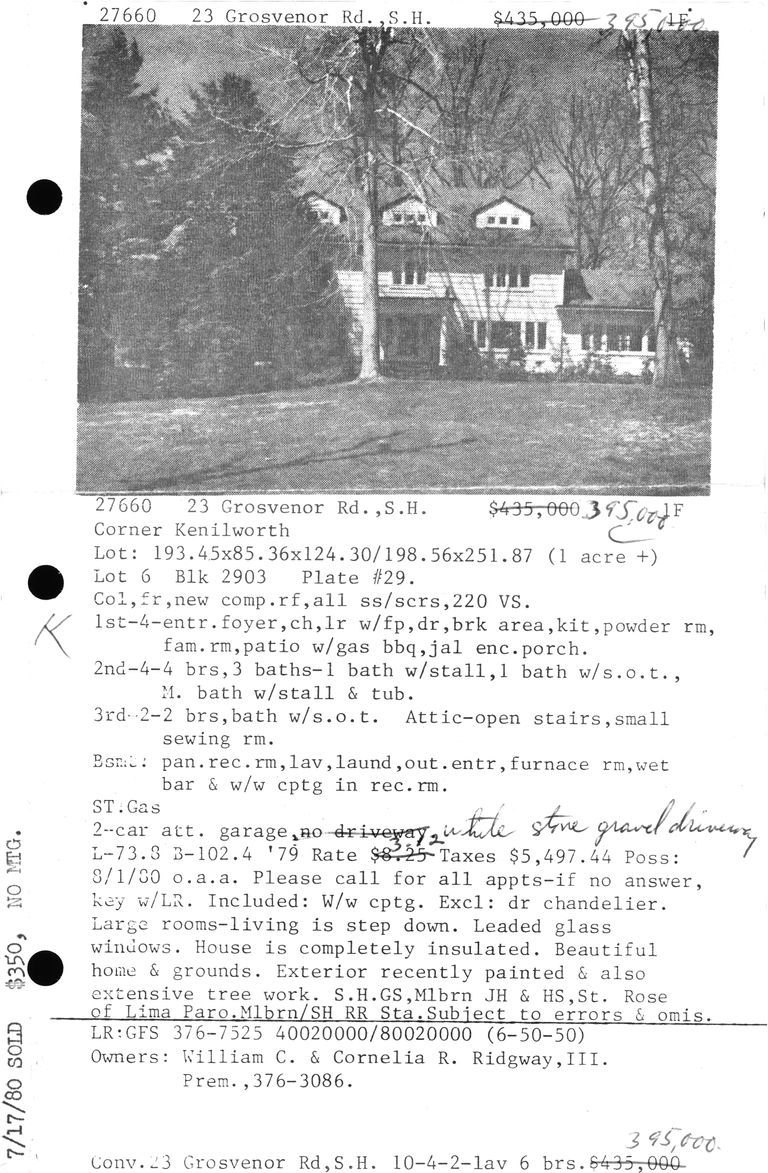 27660 23 Grosvenor Rd.,S.H. $435,000 395,000 1F
27660 23 Grosvenor Rd.,S.H. $435,000 395,000 1F
Corner Kenilworth
Lot: 193.45x85.36x124.30/198.56x251.87 (1 acre +)
Lot 6 Blk 2903 Plate #29.
Col,fr,new comp.rf,all ss/scrs,220 VS.
K
1st-4-entr.foyer,ch,lr w/fp,dr,brk area,kit,powder rm,
fam.rm,patio w/gas bbq,jal enc.porch.
2nd-4-4 brs,3 baths-1 bath w/stall,1 bath w/s.o.t.,
M. bath w/stall & tub.
3rd-2-2 brs,bath w/s.o.t. Attic-open stairs,small
sewing rm.
Bsmt: pan.rec.rm,lav,laund,out.entr,furnace rm,wet
bar & w/w cptg in rec.rm.
ST.Gas
2-car att. garage, no driveway, white stone gravel driveway
L-73.8 B-102.4 '79 Rate $8.25 3.72 Taxes $5,497.44 Poss:
8/1/80 o.a.a. Please call for all appts-if no answer,
key w/LR. Included: W/w cptg. Excl: dr chandelier.
Large rooms-living is step down. Leaded glass
windows. House is completely insulated. Beautiful
home & grounds. Exterior recently painted & also
extensive tree work. S.H.GS,Mlbrn JH & HS,St. Rose
of Lima Paro.Mlbrn/SH RR Sta.Subject to errors & omis.
LR:GFS 376-7525 40020000/80020000 (6-50-50)
Owners: William C. & Cornelia R. Ridgway,III.
Prem.,376-3086.
395,000.
Conv.23 Grosvenor Rd,S.H. 10-4-2-lav 6 brs.$435,000
7/17/80 SOLD $350, NO MTG.